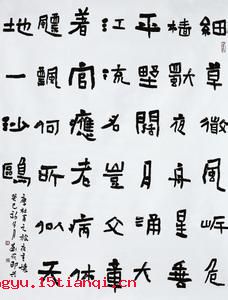 細草微風岸危
檣獨夜舟星垂
平野闊月涌大
江流名豈文章
著官應老病休
飄飄何所似天
地一沙鷗
gyu.15tianqi.cn